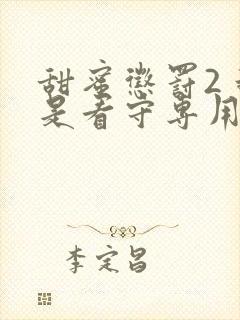 甜蜜惩罚2
是看守专用
李定昌